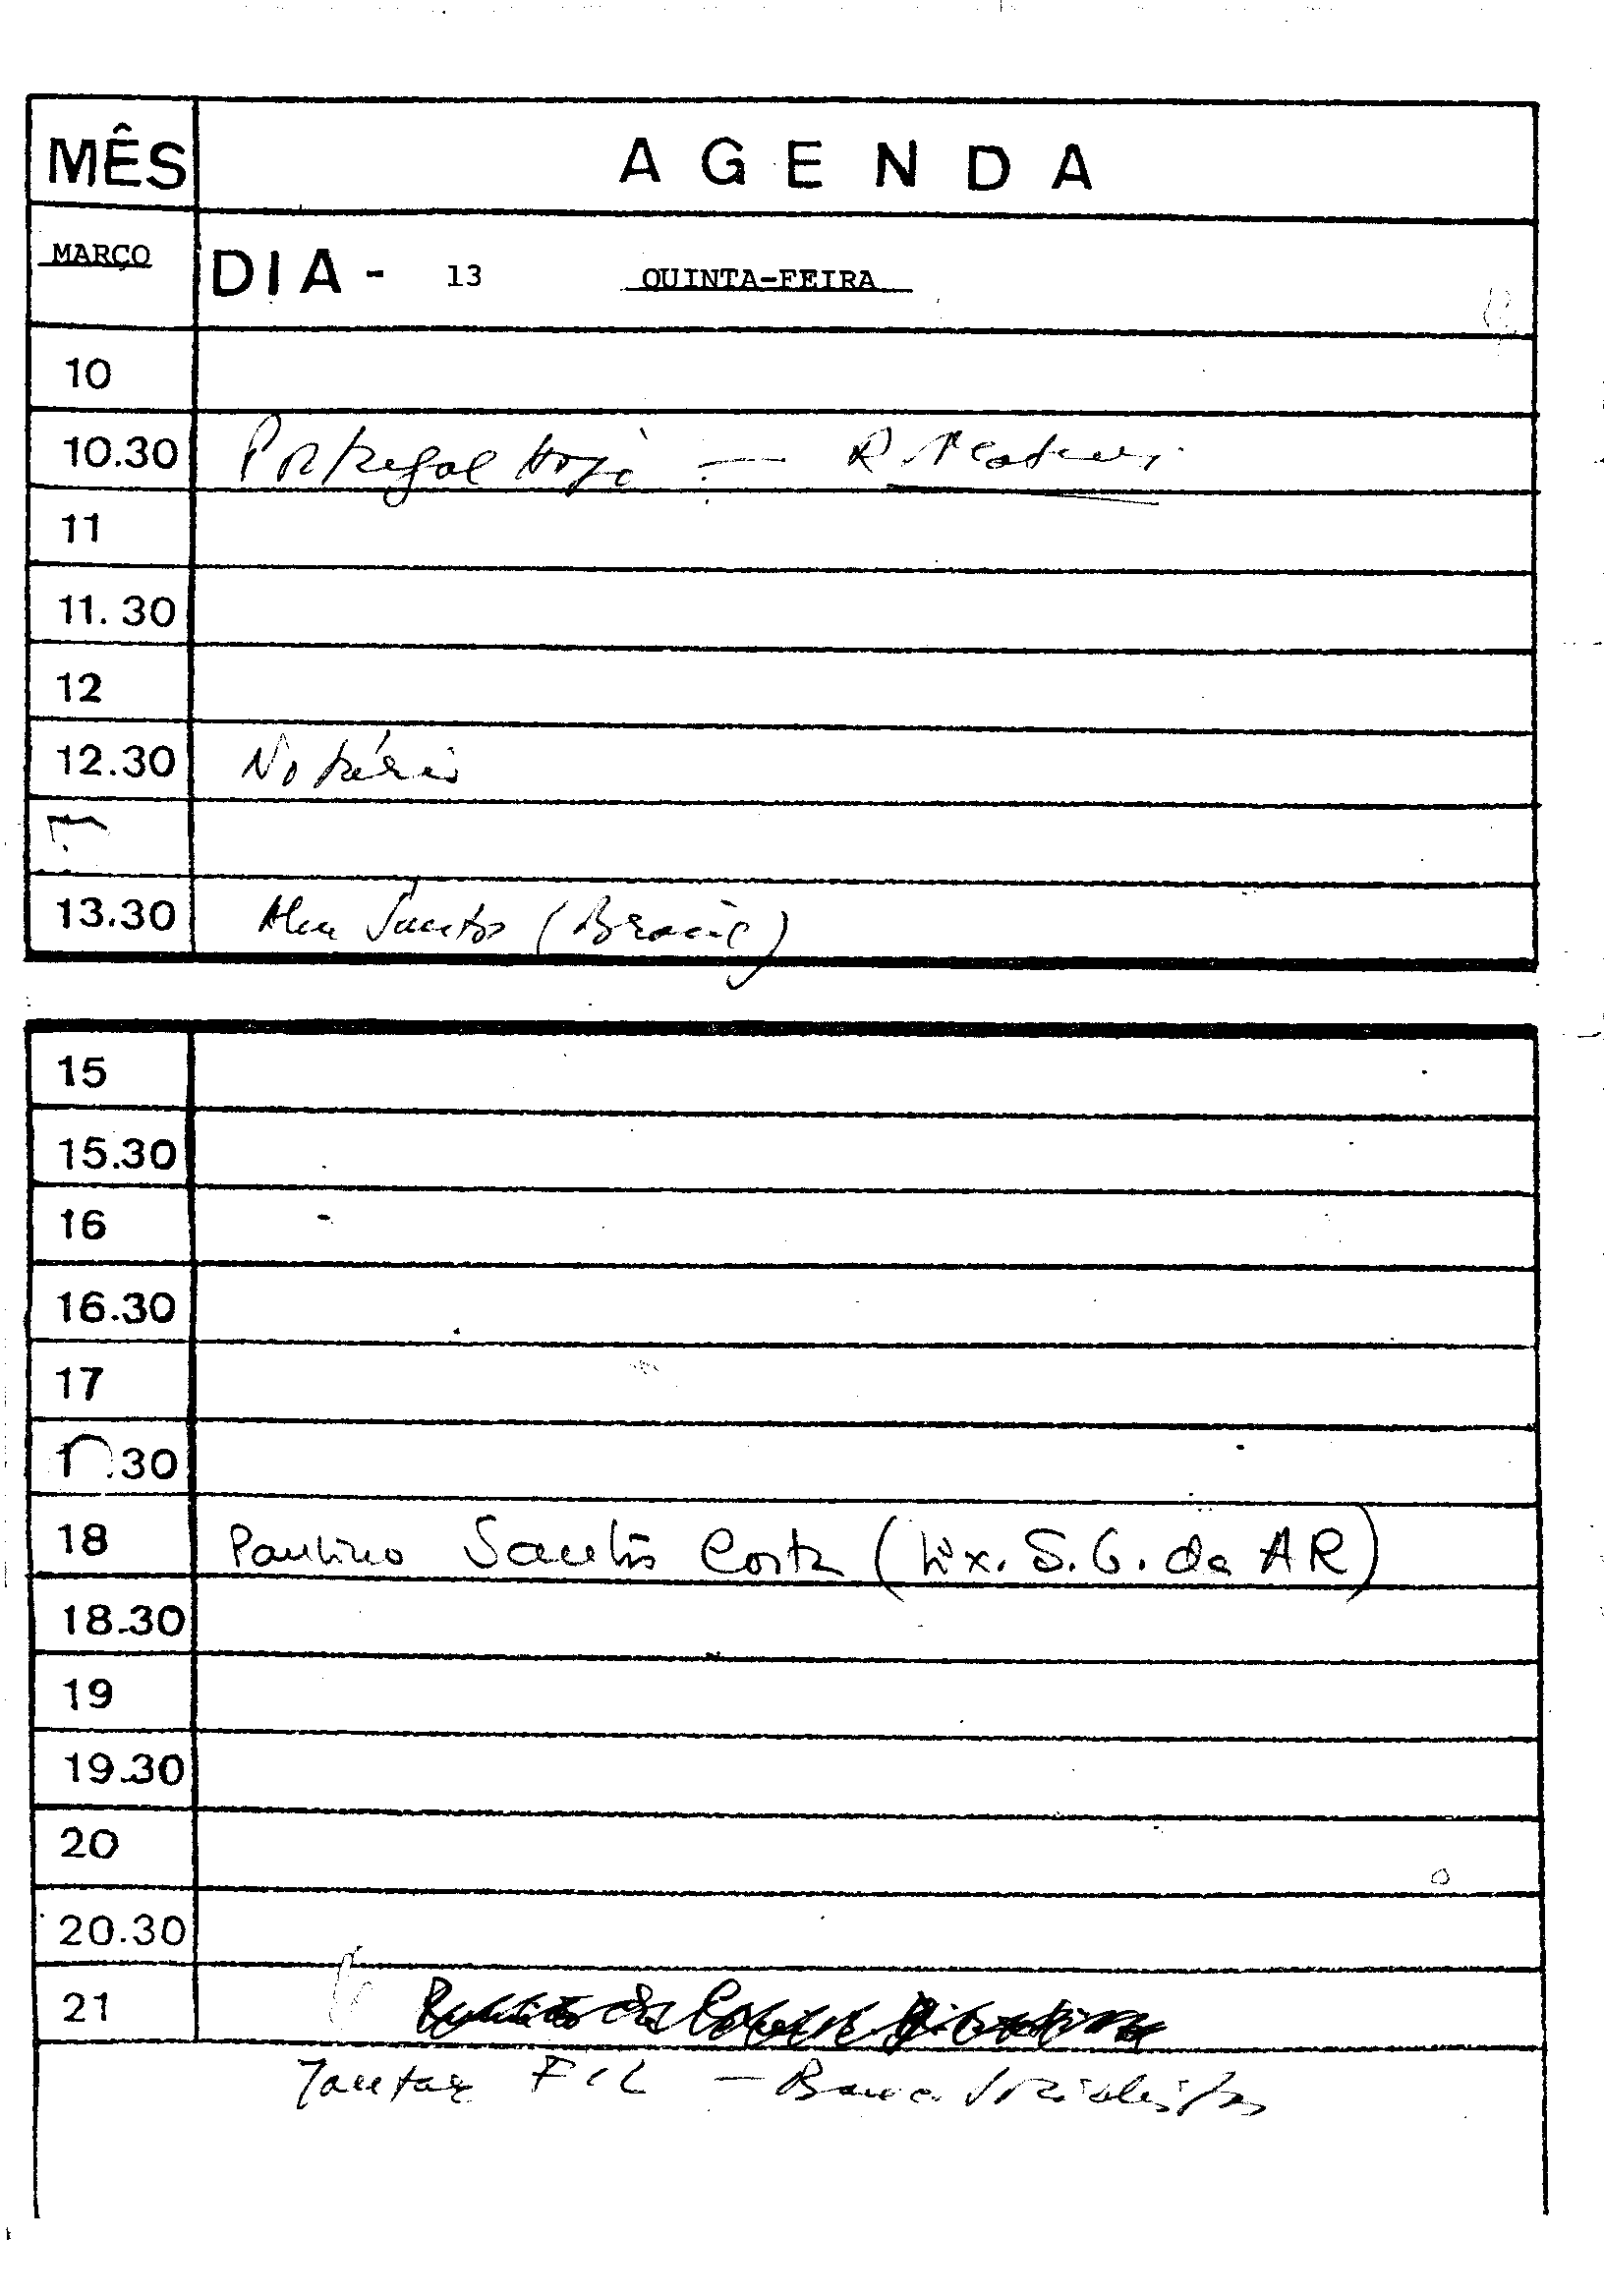 MÊS AGENDA
MARÇO DIA - 13 QUINTA-FEIRA
10
10.30 Portugal Hoje — R. Mateus
11
11.30
12
12.30 Notário
13.30 Santos (Brasil)
15
15.30
16
16.30
17
.30
18 Paulino Santos Costa (Ex. S.G. da AR)
18.30
19
19.30
20
20.30
21
Jantar FIL —